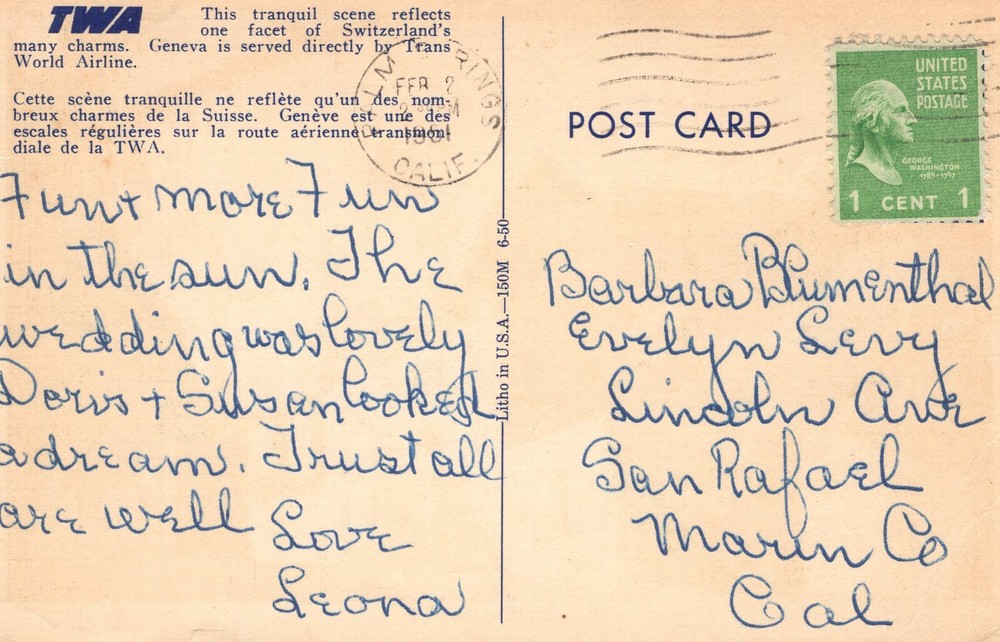 TWA
This tranquil scene reflects
one facet of Switzerland's
many charms. Geneva is served directly by Trans
World Airline.
Cette scène tranquille ne reflète qu'un des nom-
breux charmes de la Suisse. Genève est une des
escales régulières sur la route aérienne transmon-
diale de la TWA.
PALM SPRINGS
FEB 2
PM
1951
CALIF.
POST CARD
UNITED
STATES
POSTAGE
GEORGE
WASHINGTON
1789-1797
1 CENT 1
Fun + more Fun
in the sun. The
wedding was lovely
Doris + Susan looked
a dream. Trust all
are well
Love
Leona
Litho in U.S.A.—150M 6-50
Barbara Blumenthal
Evelyn Levy
Lincoln Ave
San Rafael
Marin Co
Cal